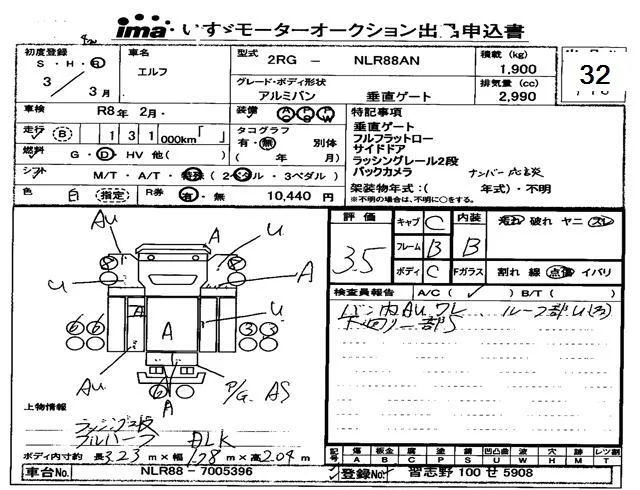 ima いすゞモーターオークション出品申込書
初度登録 車名 型式 2RG - NLR88AN 積載 (kg) 1,900
S・H・R エルフ
3 / 3月 グレード・ボディ形状 アルミバン 垂直ゲート 排気量 (cc) 2,990
32
車検 R8年 2月・ 装備 AC PS PW 特記事項
走行 (B) 131 000km「 」 タコグラフ 有・無 別体
燃料 G・D・HV 他( ) ( 年 月)
シフト M/T・A/T・特殊 ( 2ペダル ・ 3ペダル )
色 白 (指定) R券 有・無 10,440 円
垂直ゲート
フルフラットロー
サイドドア
ラッシングレール2段
バックカメラ ナンバー応談
架装物年式:( 年式)・不明
※不明の場合は、不明に○をする。
評価 3.5
キャブ C 内装 B 汚れ 破れ ヤニ スレ
フレーム B
ボディ C Fガラス 割れ 線 点傷 イバリ
検査員報告 A/C( ✓ ) B/T( )
バン内AU ワレ ルーフ部U(大)
水切り一部S
Au U A
U A
A A U
6 6 3 3
Au P/G AS
6 A
上物情報
ラッシング2段
フルハーフ BLK
ボディ内寸約 長3.23m×幅1.78m×高2.04m
記号 傷 A 板金 B 腐 C 塗 P 錆 S 凹凸曲 U 波 W 穴 H 跡 M レツ割 T
車台No. NLR88 - 7005396 登録No. 習志野 100 せ 5908